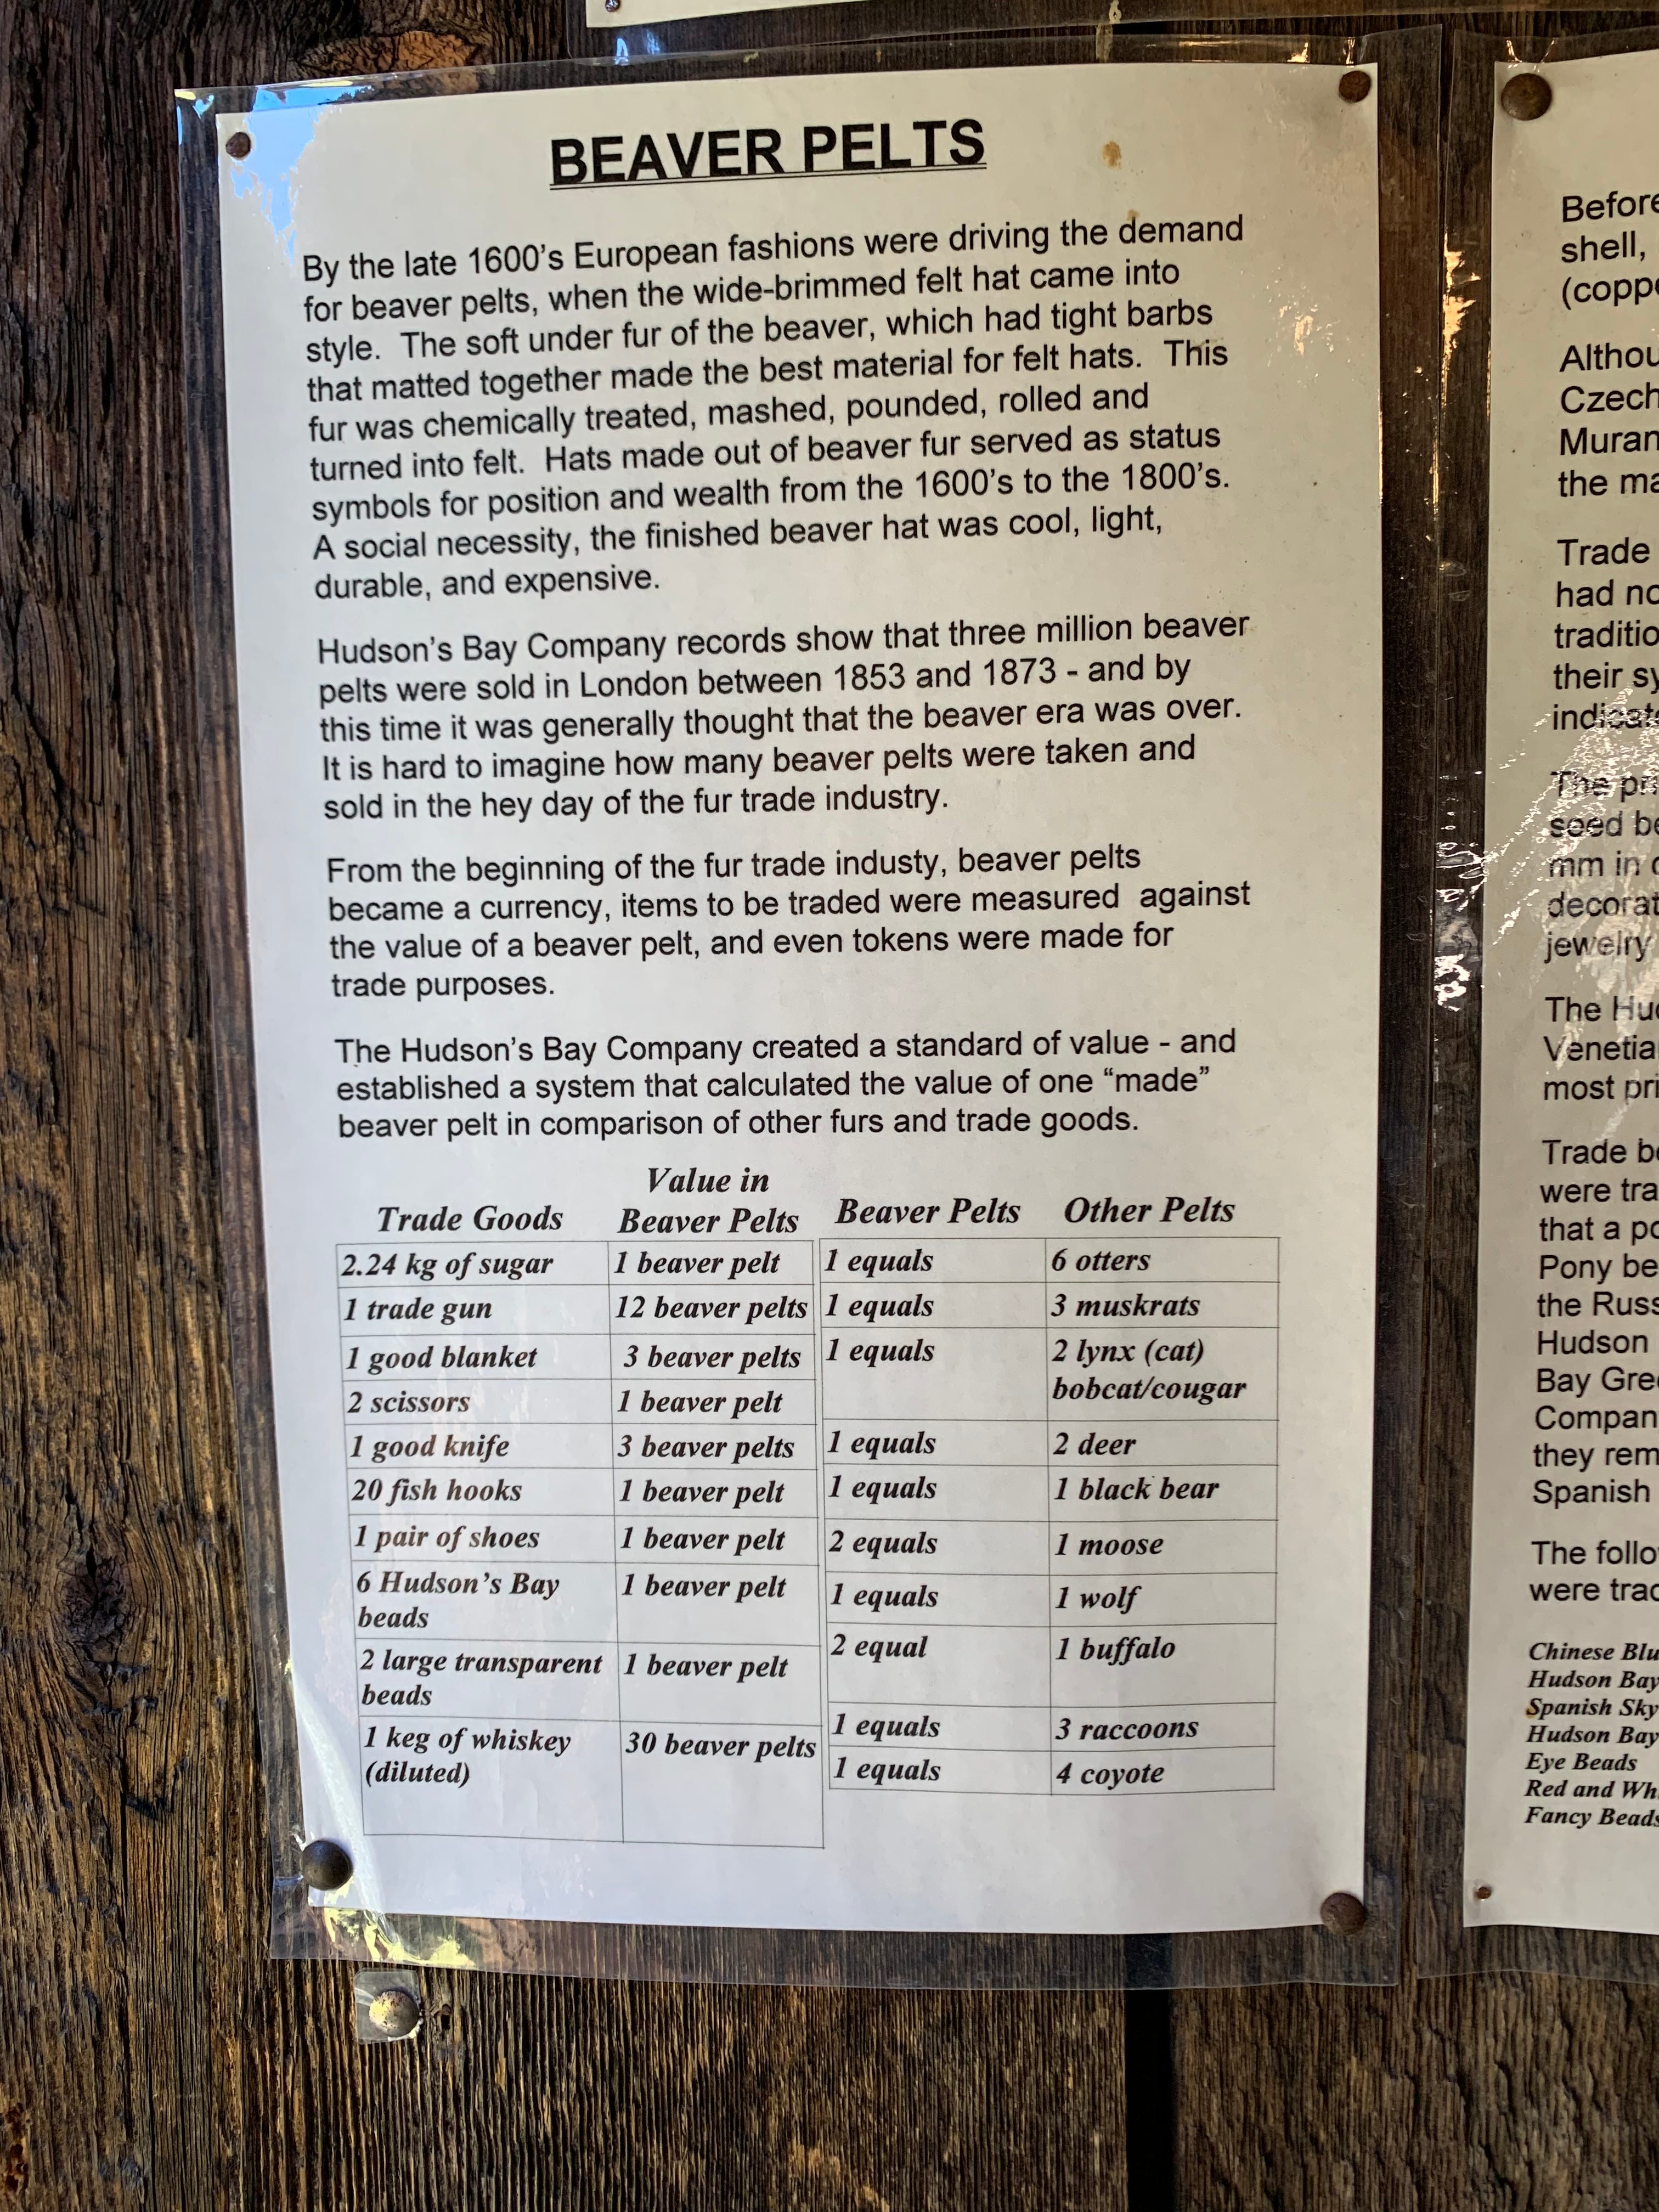 BEAVER PELTS
By the late 1600's European fashions were driving the demand
for beaver pelts, when the wide-brimmed felt hat came into
style.  The soft under fur of the beaver, which had tight barbs
that matted together made the best material for felt hats.  This
fur was chemically treated, mashed, pounded, rolled and
turned into felt.  Hats made out of beaver fur served as status
symbols for position and wealth from the 1600's to the 1800's.
A social necessity, the finished beaver hat was cool, light,
durable, and expensive.
Hudson's Bay Company records show that three million beaver
pelts were sold in London between 1853 and 1873 - and by
this time it was generally thought that the beaver era was over.
It is hard to imagine how many beaver pelts were taken and
sold in the hey day of the fur trade industry.
From the beginning of the fur trade industy, beaver pelts
became a currency, items to be traded were measured  against
the value of a beaver pelt, and even tokens were made for
trade purposes.
The Hudson's Bay Company created a standard of value - and
established a system that calculated the value of one “made”
beaver pelt in comparison of other furs and trade goods.
Trade Goods
Value in
Beaver Pelts
2.24 kg of sugar 1 beaver pelt
1 trade gun 12 beaver pelts
1 good blanket 3 beaver pelts
2 scissors 1 beaver pelt
1 good knife 3 beaver pelts
20 fish hooks 1 beaver pelt
1 pair of shoes 1 beaver pelt
6 Hudson's Bay 1 beaver pelt
beads
2 large transparent 1 beaver pelt
beads
1 keg of whiskey 30 beaver pelts
(diluted)
Beaver Pelts Other Pelts
1 equals 6 otters
1 equals 3 muskrats
1 equals 2 lynx (cat)
bobcat/cougar
1 equals 2 deer
1 equals 1 black bear
2 equals 1 moose
1 equals 1 wolf
2 equal 1 buffalo
1 equals 3 raccoons
1 equals 4 coyote
Before
shell,
Czech
the
Trade
had
their
The
seed
mm in
jewelry
The
most
Trade
were
that a
Pony
the
Hudson
Bay
they
Spanish
The
were
Chinese
Hudson Bay
Spanish Sky
Hudson Bay
Eye Beads
Red and
Fancy Beads